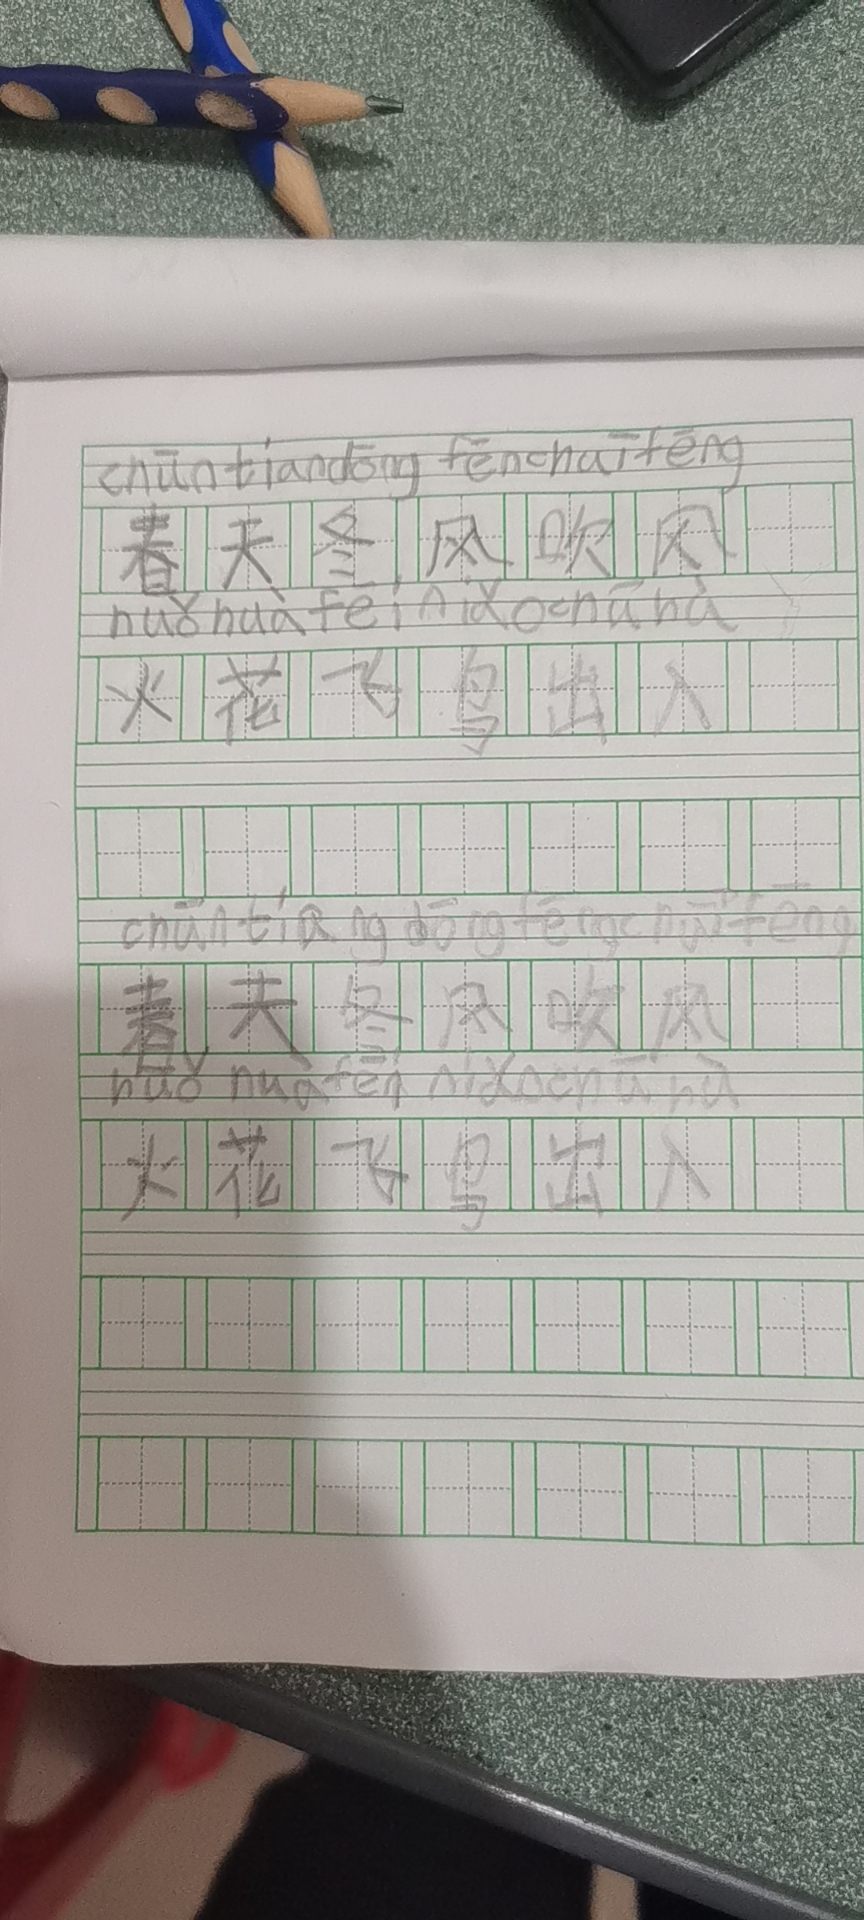 chūntiandōng fēnchuīfēng
春天冬风吹风
huǒhuàfēiniǎochūhà
火花飞鸟出入
chūntiang dōngfēngchuīfēng
春天冬风吹风
huǒ huāfēiniǎochūhà
火花飞鸟出入